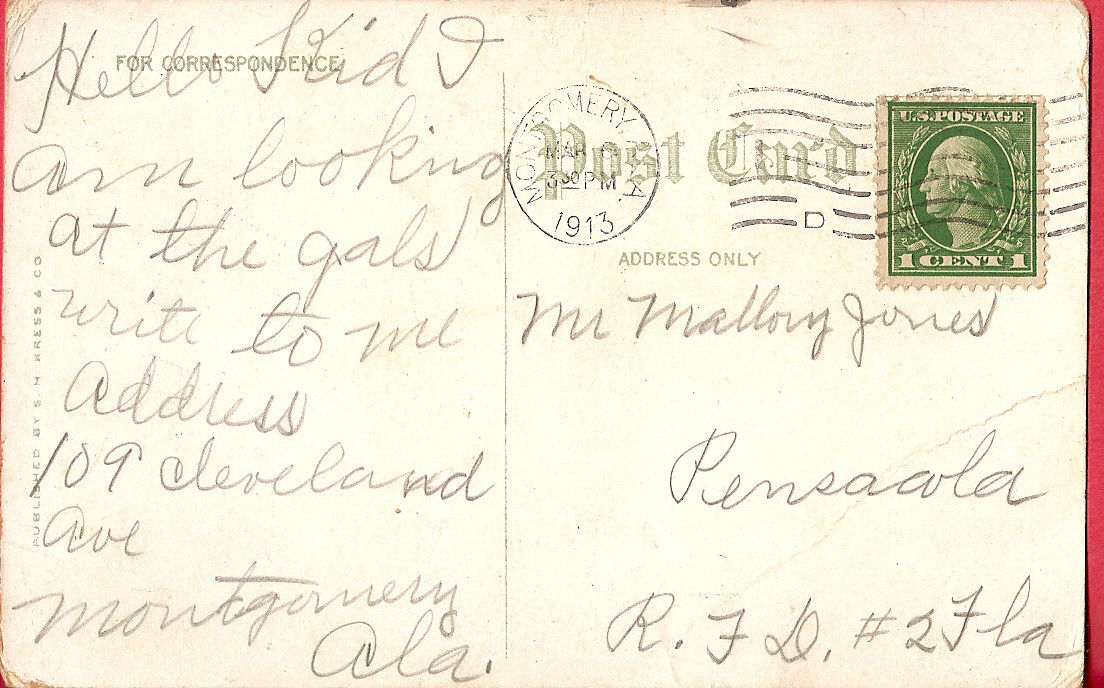 FOR CORRESPONDENCE
Hello Kid I
am looking
at the gals
write to me
Address
109 Cleveland
Ave
Montgomery
Ala.
PUBLISHED BY S. H. KRESS & CO.
Post Card
MONTGOMERY, ALA.
MAR
3 30 PM
1913
D
U.S. POSTAGE
1 CENT 1
ADDRESS ONLY
Mr Mallory Jones
Pensacola
R. F. D. #2 Fla